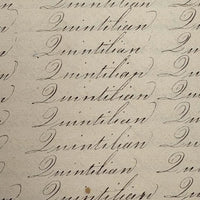 Quintilian
Quintilian
Quintilian
Quintilian
Quintilian
Quintilian
Quintilian
Quintilian
Quintilian